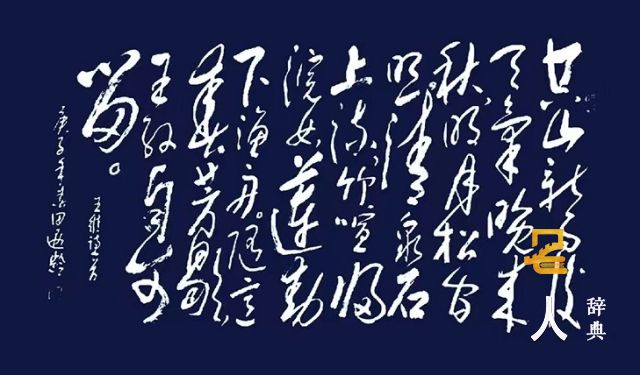 空山新雨後
天氣晚來
秋明月松間
照清泉石
上流竹喧歸
浣女蓮動
下漁舟隨意
春芳歇
王孫自可
留。
王維詩
庚子年
人
辞典